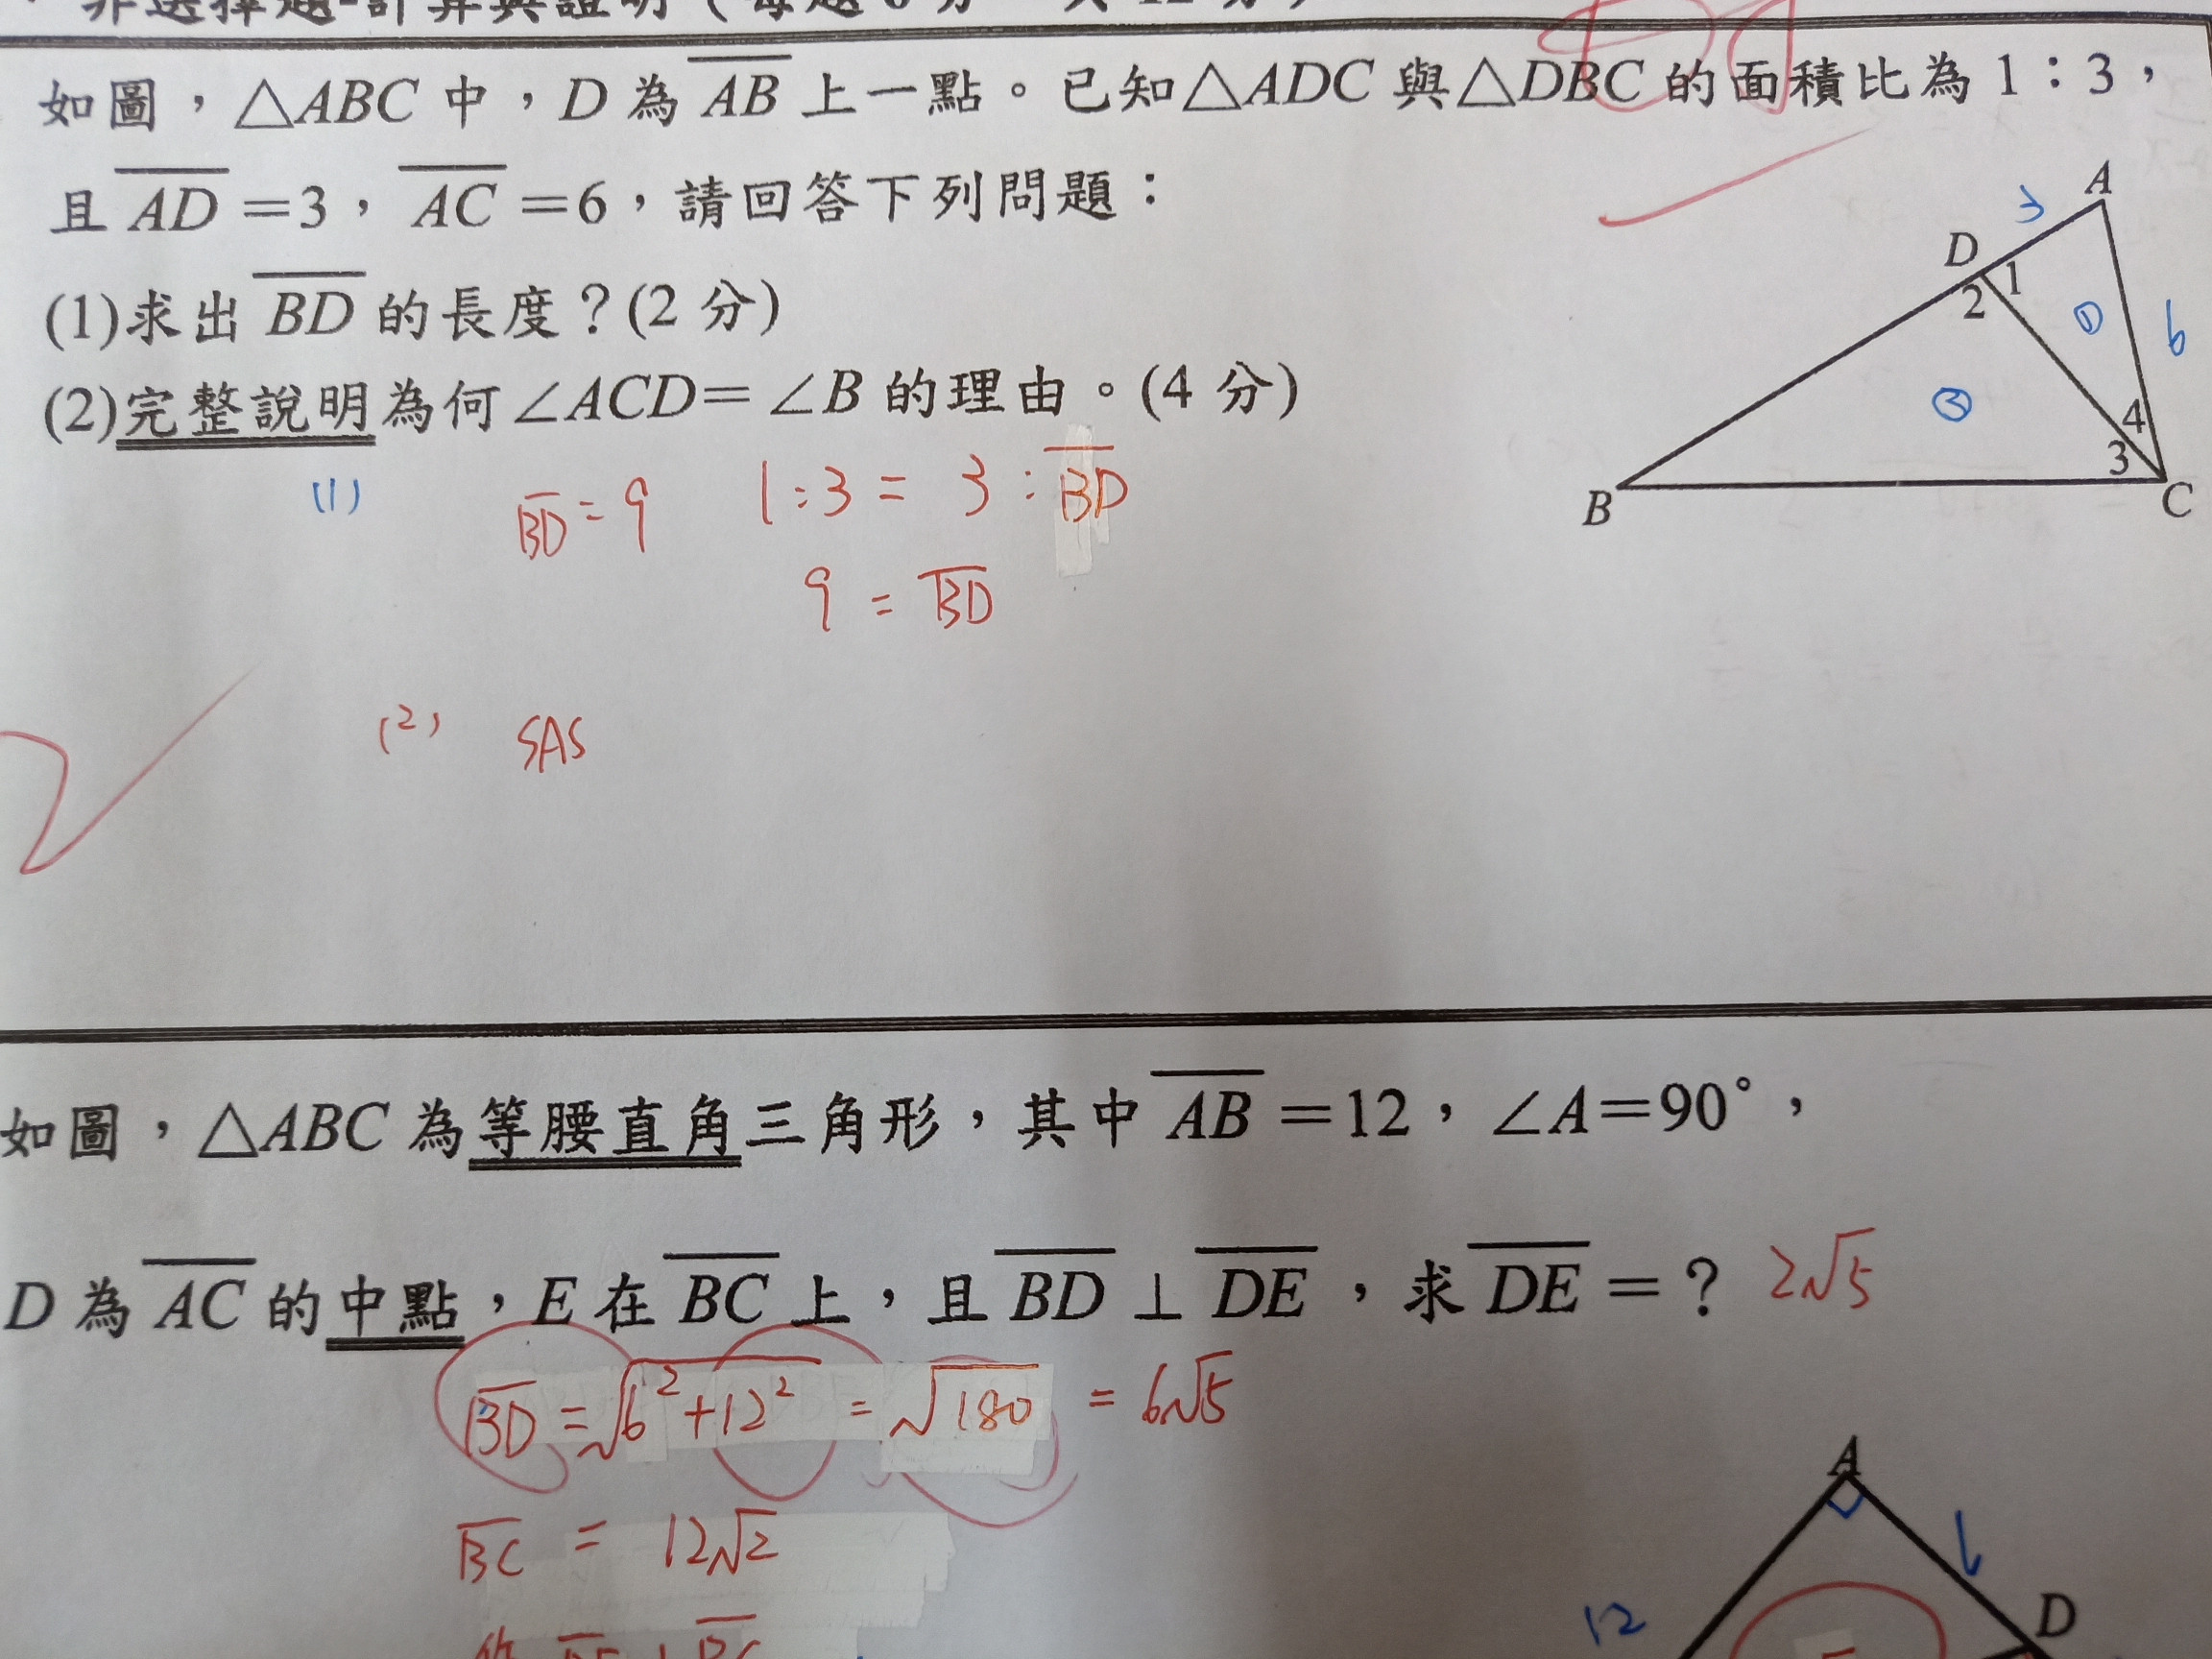 如圖，△ABC 中，D 為 AB 上一點。已知△ADC 與△DBC 的面積比為 1：3，
且 AD =3，AC =6，請回答下列問題：
(1)求出 BD 的長度？(2 分)
(2)完整說明為何∠ACD=∠B 的理由。(4 分)
A
3
D
1
2
①
6
③
4
3
B
C
(1) BD = 9 1:3 = 3:BD
9 = BD
(2) SAS
如圖，△ABC 為等腰直角三角形，其中 AB =12，∠A=90°，
D 為 AC 的中點，E 在 BC 上，且 BD ⊥ DE，求 DE =？ 2√5
BD = √6²+12² = √180 = 6√5
BC = 12√2
A
6
12
D